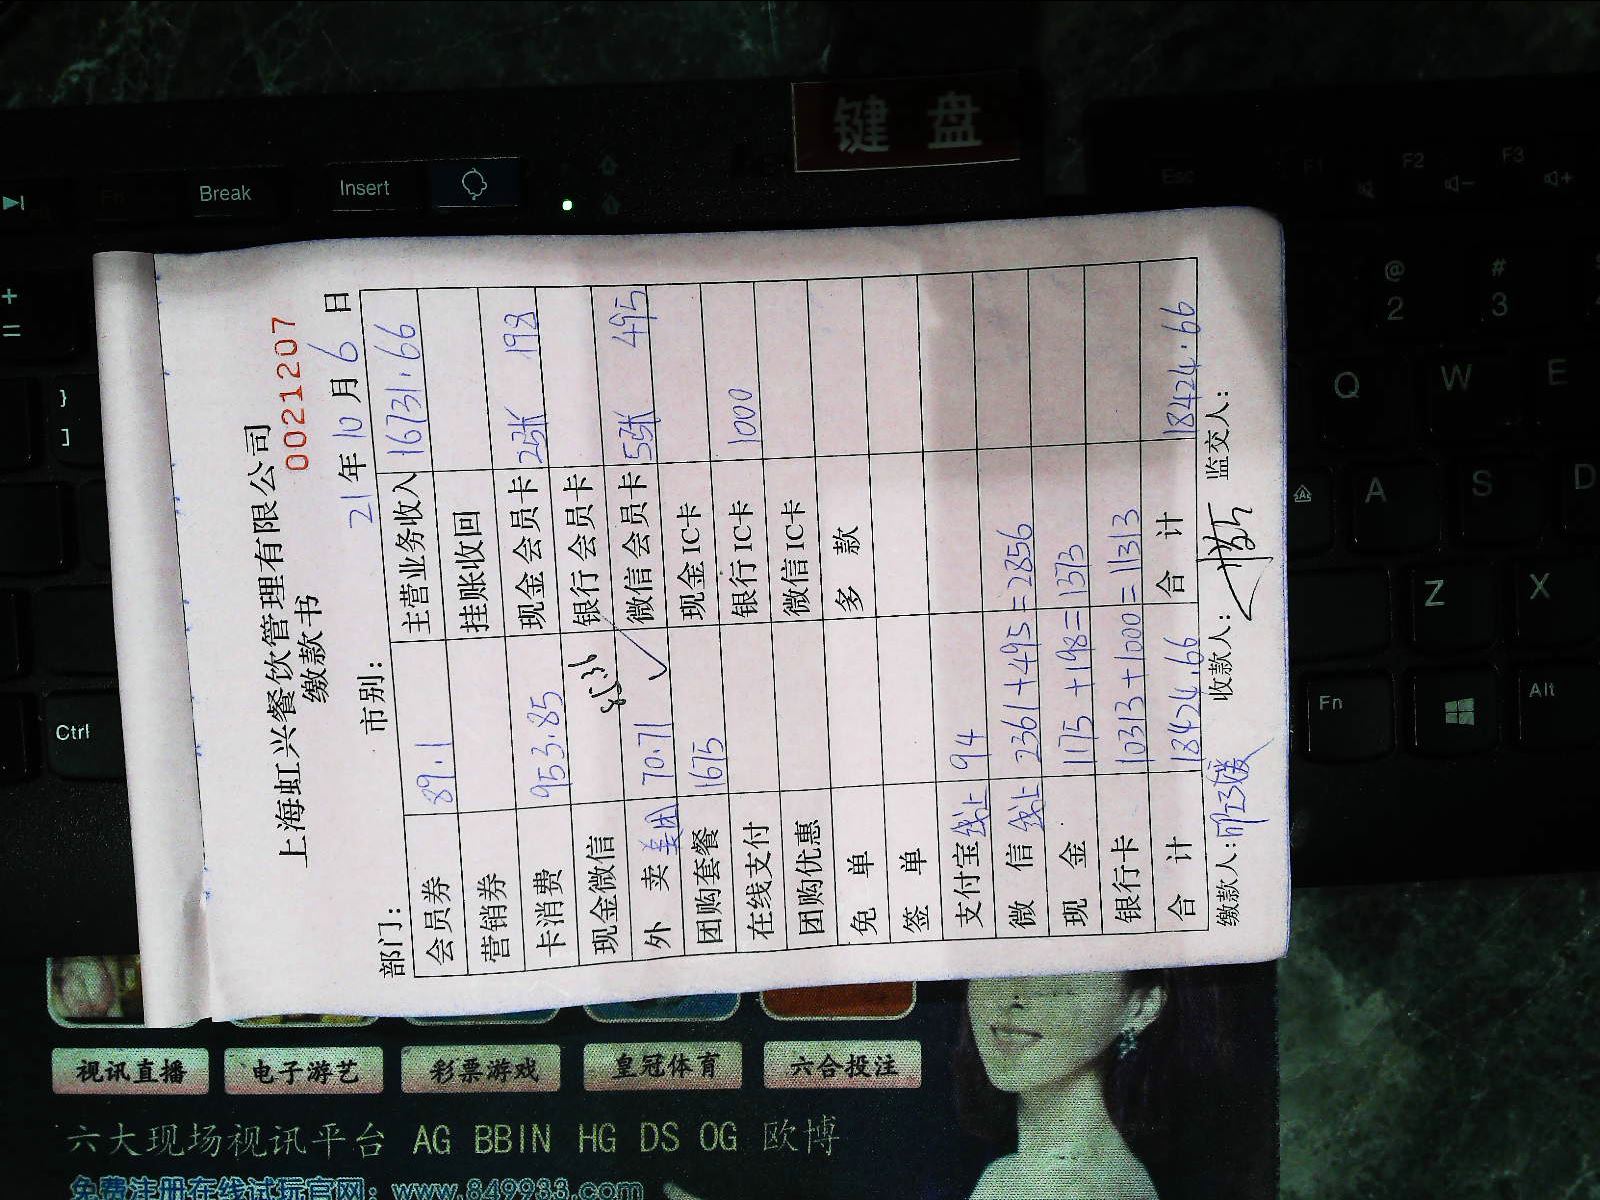 键 盘
Fn
Break
Insert
Esc
F1
F2
F3
+
=
}
]
Ctrl
@
2
#
3
Q
W
E
A
S
D
Z
X
Fn
Alt
上海虹兴餐饮管理有限公司
缴款书
0021207
部门：
市别：
21年10月6日
会员券 89.1 主营业务收入 16731.66
营销券 挂账收回
卡消费 953.85 现金会员卡 2张 198
现金微信 银行会员卡
外 卖 美团 70.71 微信会员卡 5张 495
团购套餐 1675 现金IC卡
在线支付 银行IC卡 1000
团购优惠 微信IC卡
免 单 多 款
签 单
支付宝 线上 94
微 信 线上 2361+495=2856
现 金 1175+198=1373
银行卡 10313+1000=11313
合 计 18424.66 合 计 18424.66
缴款人：
收款人：
监交人：
视讯直播
电子游艺
彩票游戏
皇冠体育
六合投注
六大现场视讯平台 AG BBIN HG DS OG 欧博
免费注册在线试玩官网：www.849933.com